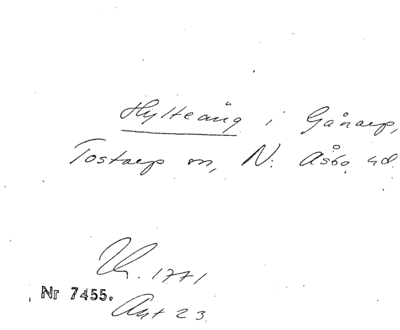 Hylteäng i Gånarp,
Tostarp sn, N. Åsbo hd.
1771
Nr 7455.
Akt 23.